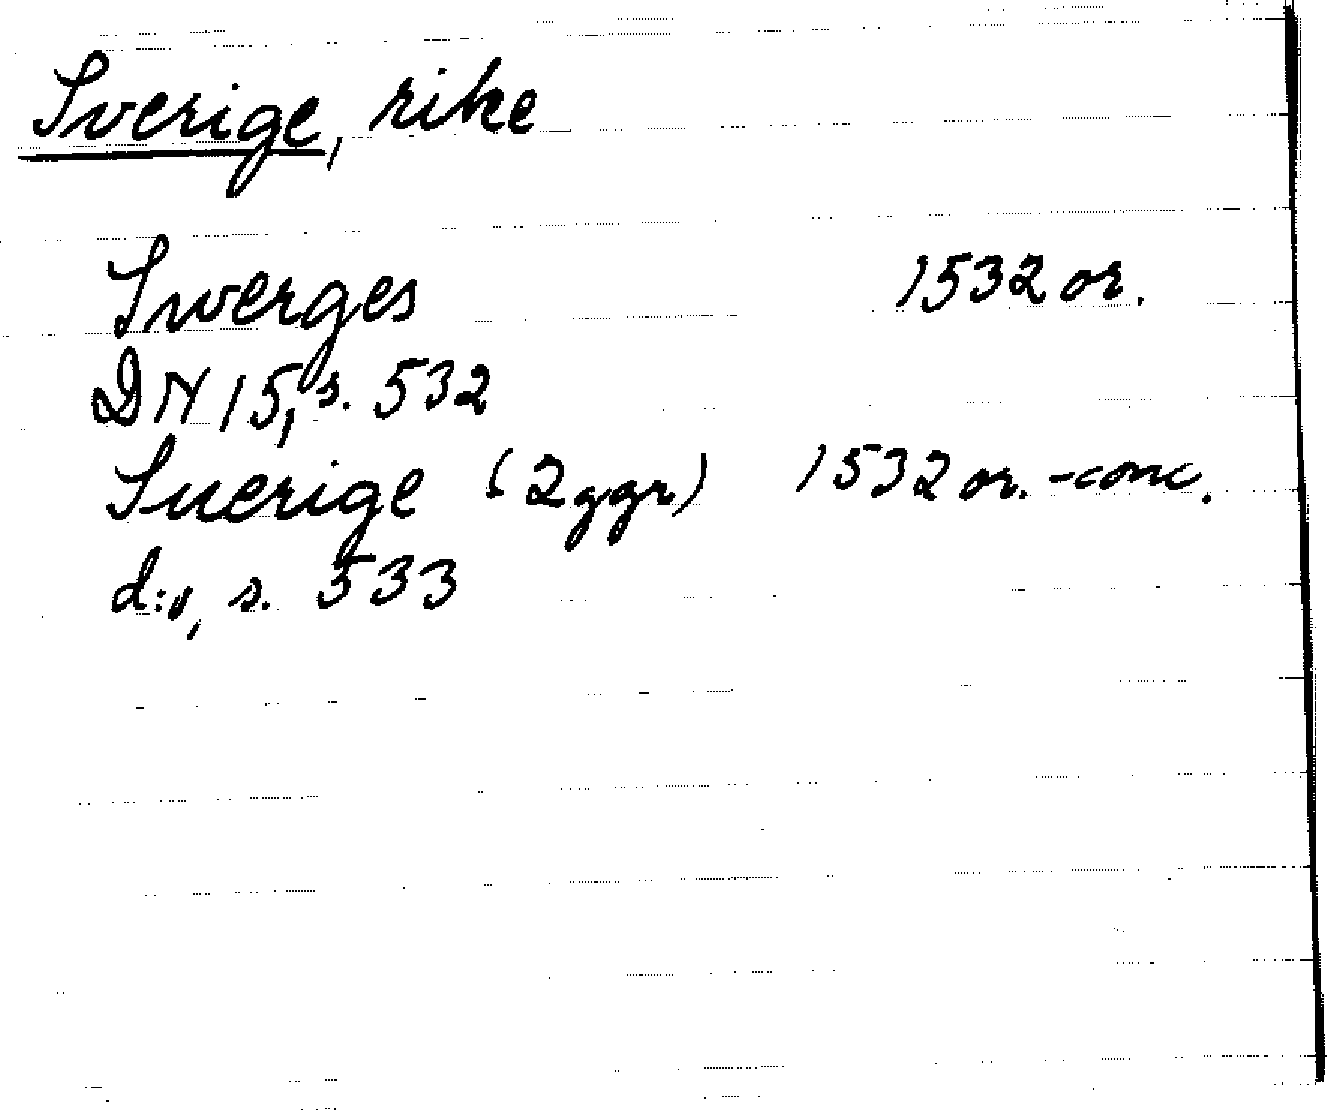 Sverige, rike
Swerges 1532 or.
DN 15, s. 532
Suerige (2 ggr) 1532 or.-conc.
d:o, s. 533